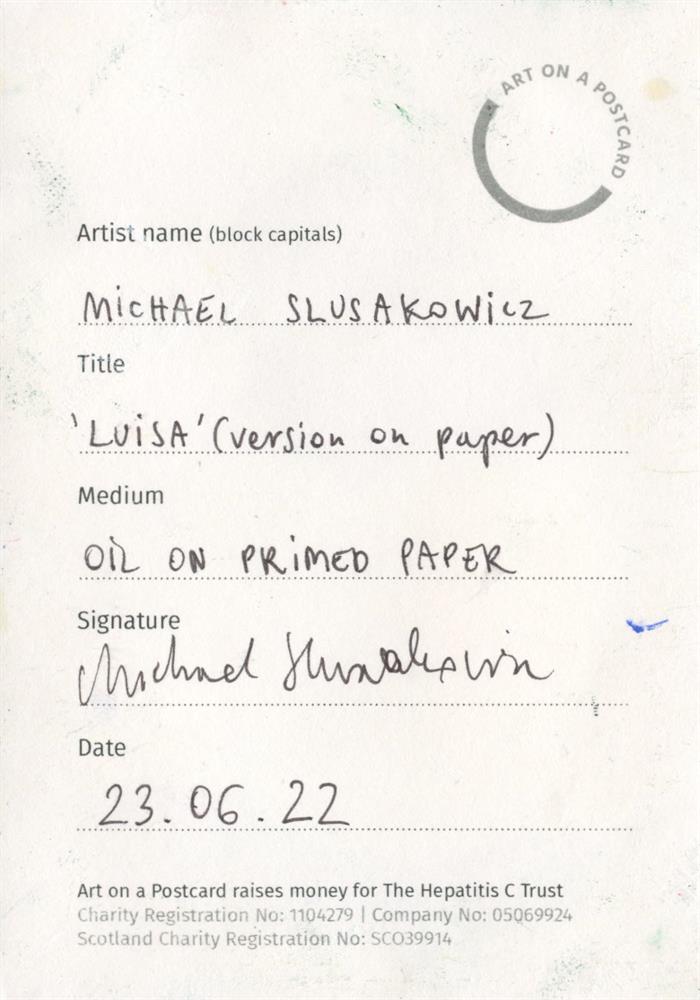 ART ON A POSTCARD
Artist name (block capitals)
MiCHAEL SLUSAKOWiCZ
Title
'LUiSA' (version on paper)
Medium
OiL ON PRiMED PAPER
Signature
Michael Slusakowicz
Date
23.06.22
Art on a Postcard raises money for The Hepatitis C Trust
Charity Registration No: 1104279 | Company No: 05069924
Scotland Charity Registration No: SCO39914